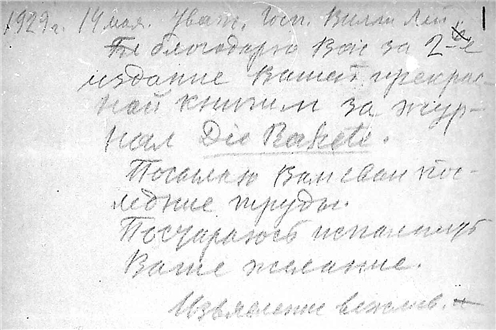 1929г. 19 мая. Уваж. Госп. Вилли Лей. 1
Благодарю Вас за 2-е
издание Вашей прекрас-
ной книги и за жур-
нал Die Rakete.
Посылаю Вам свои пос-
ледние труды.
Постараюсь исполнить
Ваше желание.
Изъявление вежлив.